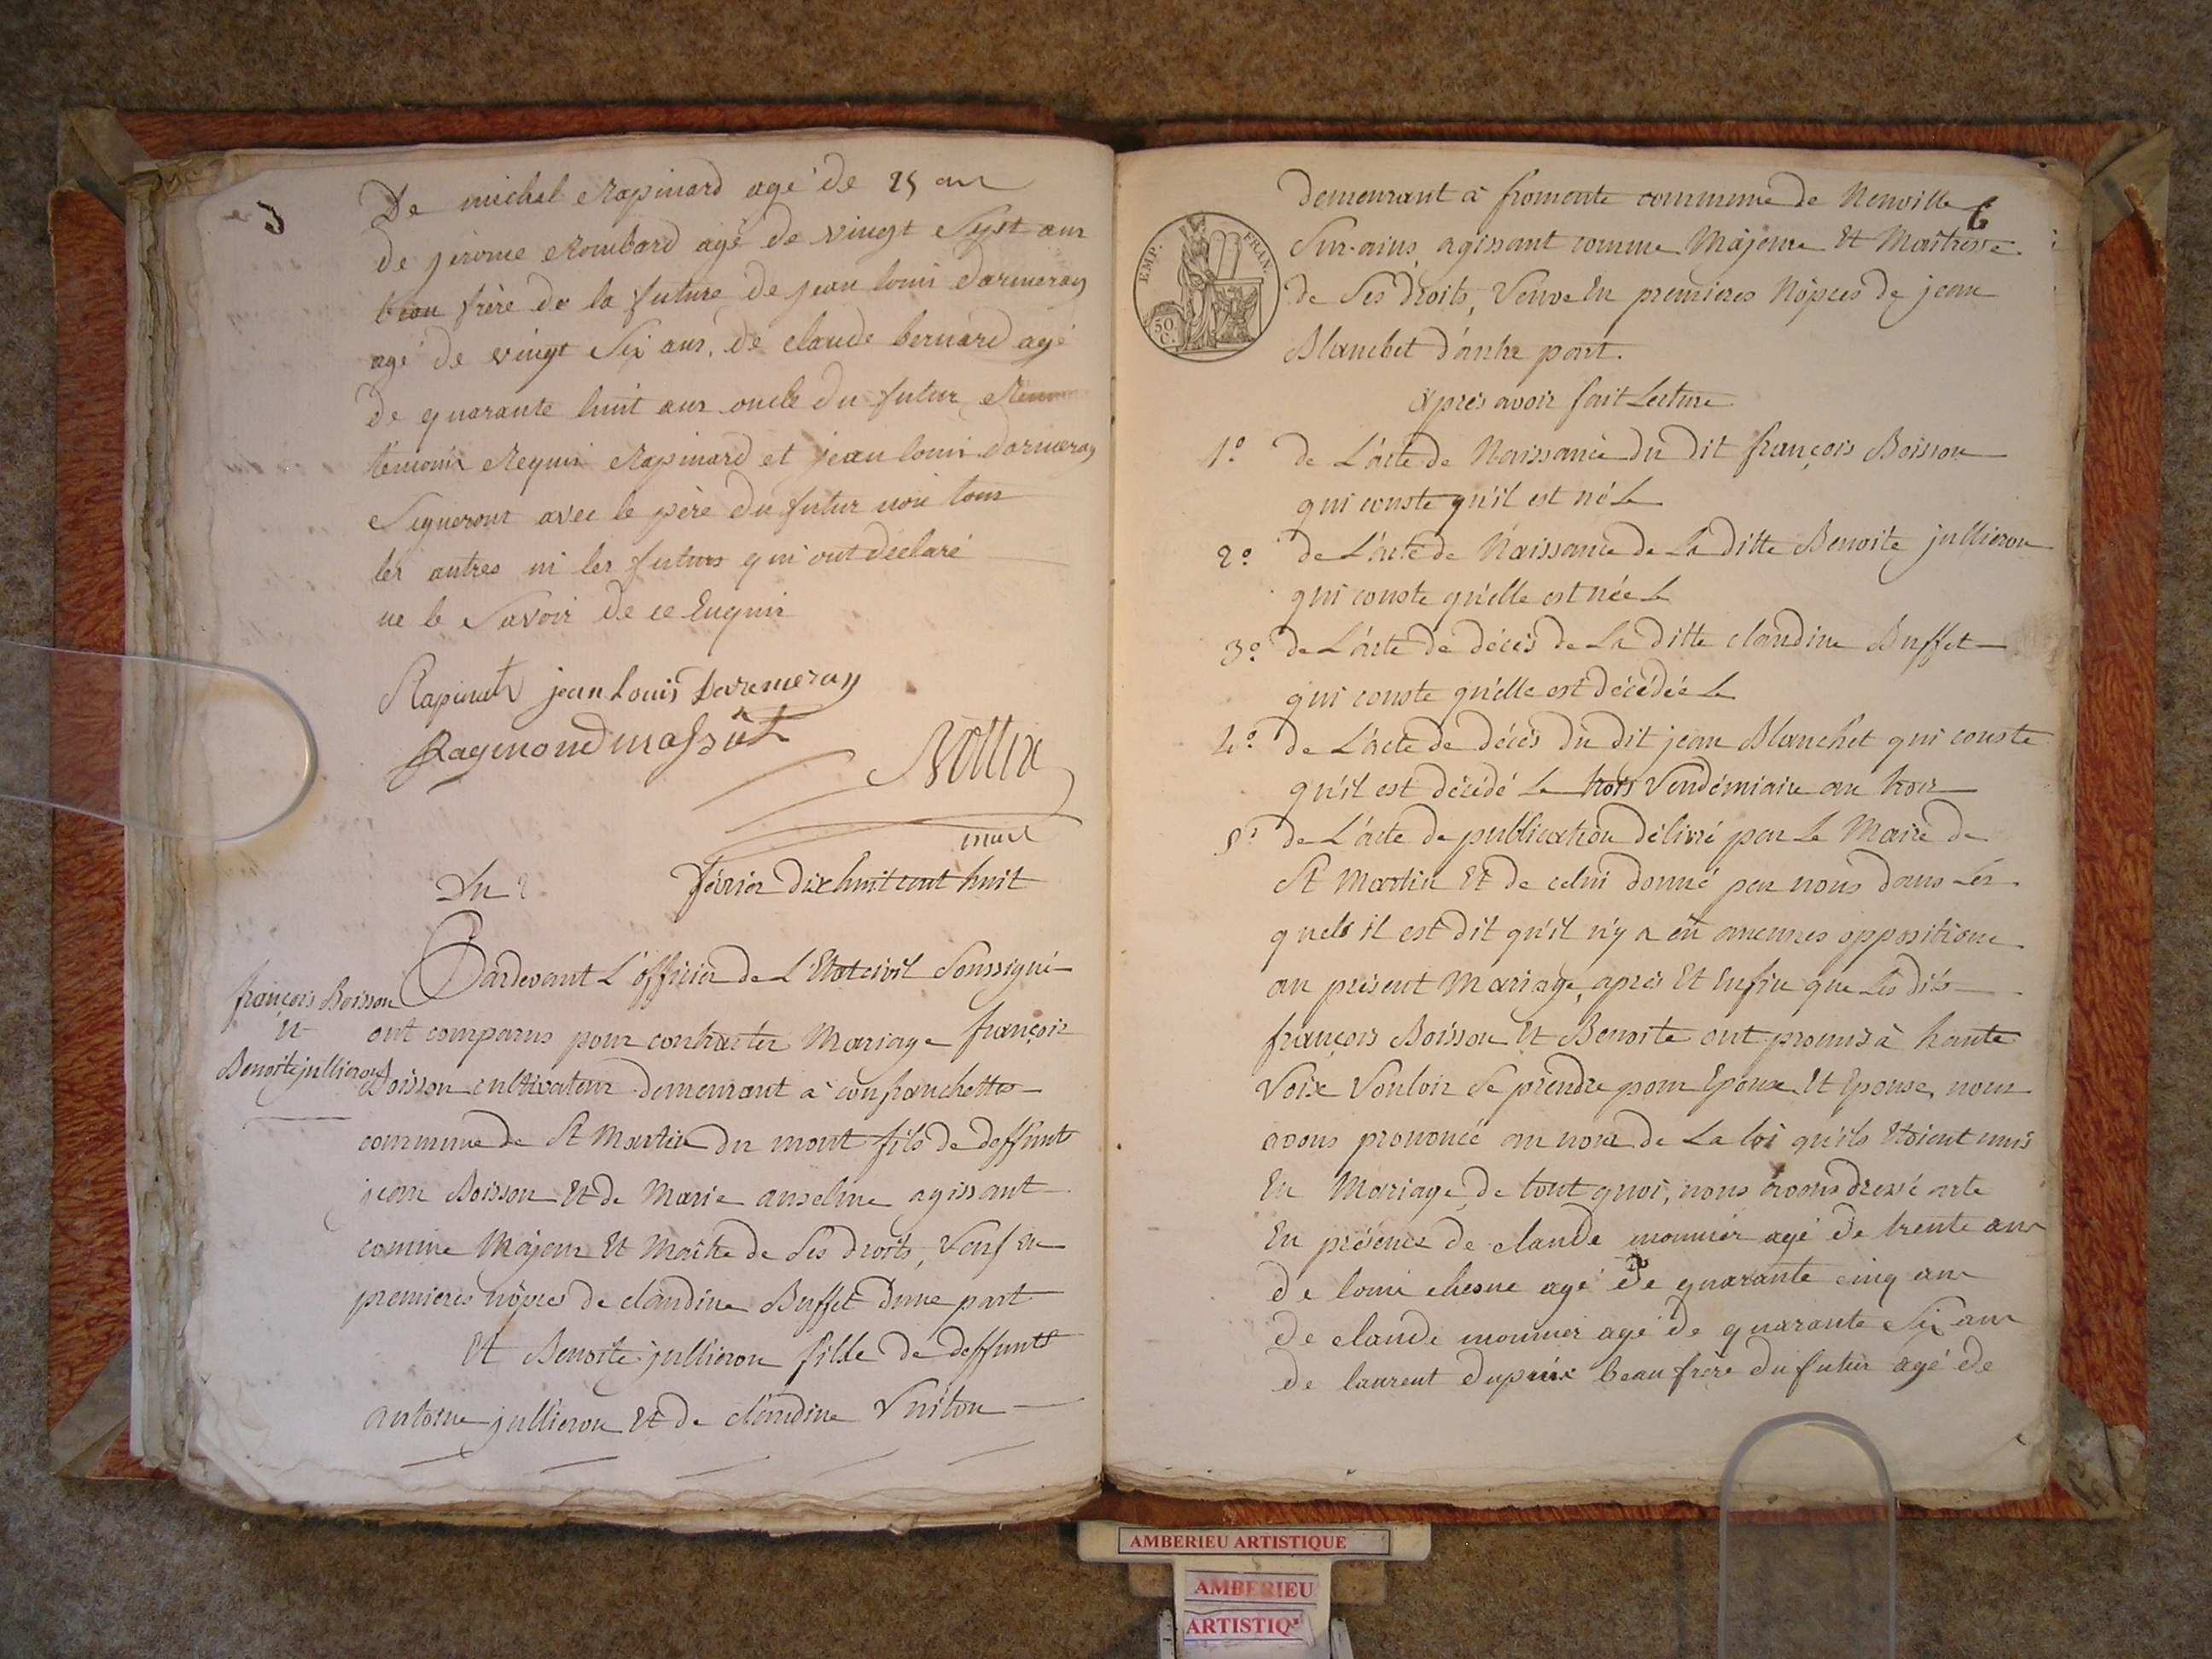 De michel Rapinard agé de 25 ans
de jérome Rombard agé de vingt Sept ans
beau frère de la future de jean louis Darmeray
agé de vingt Six ans, de claude bernard agé
de quarante huit ans oncle du futur
témoins Requis Rapinard et jean louis Darmeray
Signeront avec le père du futur non tous
les autres ni les futurs qui ont déclaré
ne le Savoir de ce Enquis
jean Louis Darmeray
Raymond
maire
Du 2 février dix huit cent huit
françois Boisson
Et
Benoite jullieron
Pardevant L'officier de L'Etat civil Soussigné
ont comparus pour contracter Mariage françois
Boisson cultivateur demeurant à confranchette
commune de St Martin du mont fils de deffunt
jean Boisson Et de Marie anselme agissant
comme Majeur Et Maitre de Ses droits, Veuf en
premieres nôpces de claudine Buffet d'une part
Et Benoite jullieron fille de deffunts
antoine jullieron Et de claudine
6
EMP. FRAN.
50 C.
demeurant à fromente commune de Neuville
Sur-ains, agissant comme Majeure Et Maitresse
de Ses droits, Veuve En premieres Nôpces de jean
Blanchet d'autre part.
après avoir fait Lecture
1.° de L'acte de Naissance du dit françois Boisson
qui conste qu'il est né Le
2.° de L'acte de Naissance de La ditte Benoite jullieron
qui conste qu'elle est née Le
3.° de L'acte de décès de La ditte claudine Buffet
qui conste qu'elle est décédée Le
4.° de L'acte de décès du dit jean Blanchet qui conste
qu'il est décédé Le trois Vendémiaire an trois
5.° de L'acte de publication délivré par Le Maire de
St Martin Et de celui donné par nous dans Les
quels il est dit qu'il n'y a eû aucunes oppositions
au présent Mariage, après Et Enfin que Les dits
françois Boisson Et Benoite ont promis à haute
Voix Vouloir Se prendre pour Epoux Et Epouse, nous
avons prononcé au nom de La loi qu'ils Etoient unis
En Mariage, de tout quoi, nous avons dressé acte
En présence de claude monnier agé de trente ans
de louis chesne agé de quarante cinq ans
de claude monnier agé de quarante Six ans
de laurent Dupuix beau frère du futur agé de
AMBERIEU ARTISTIQUE
AMBERIEU
ARTISTIQ